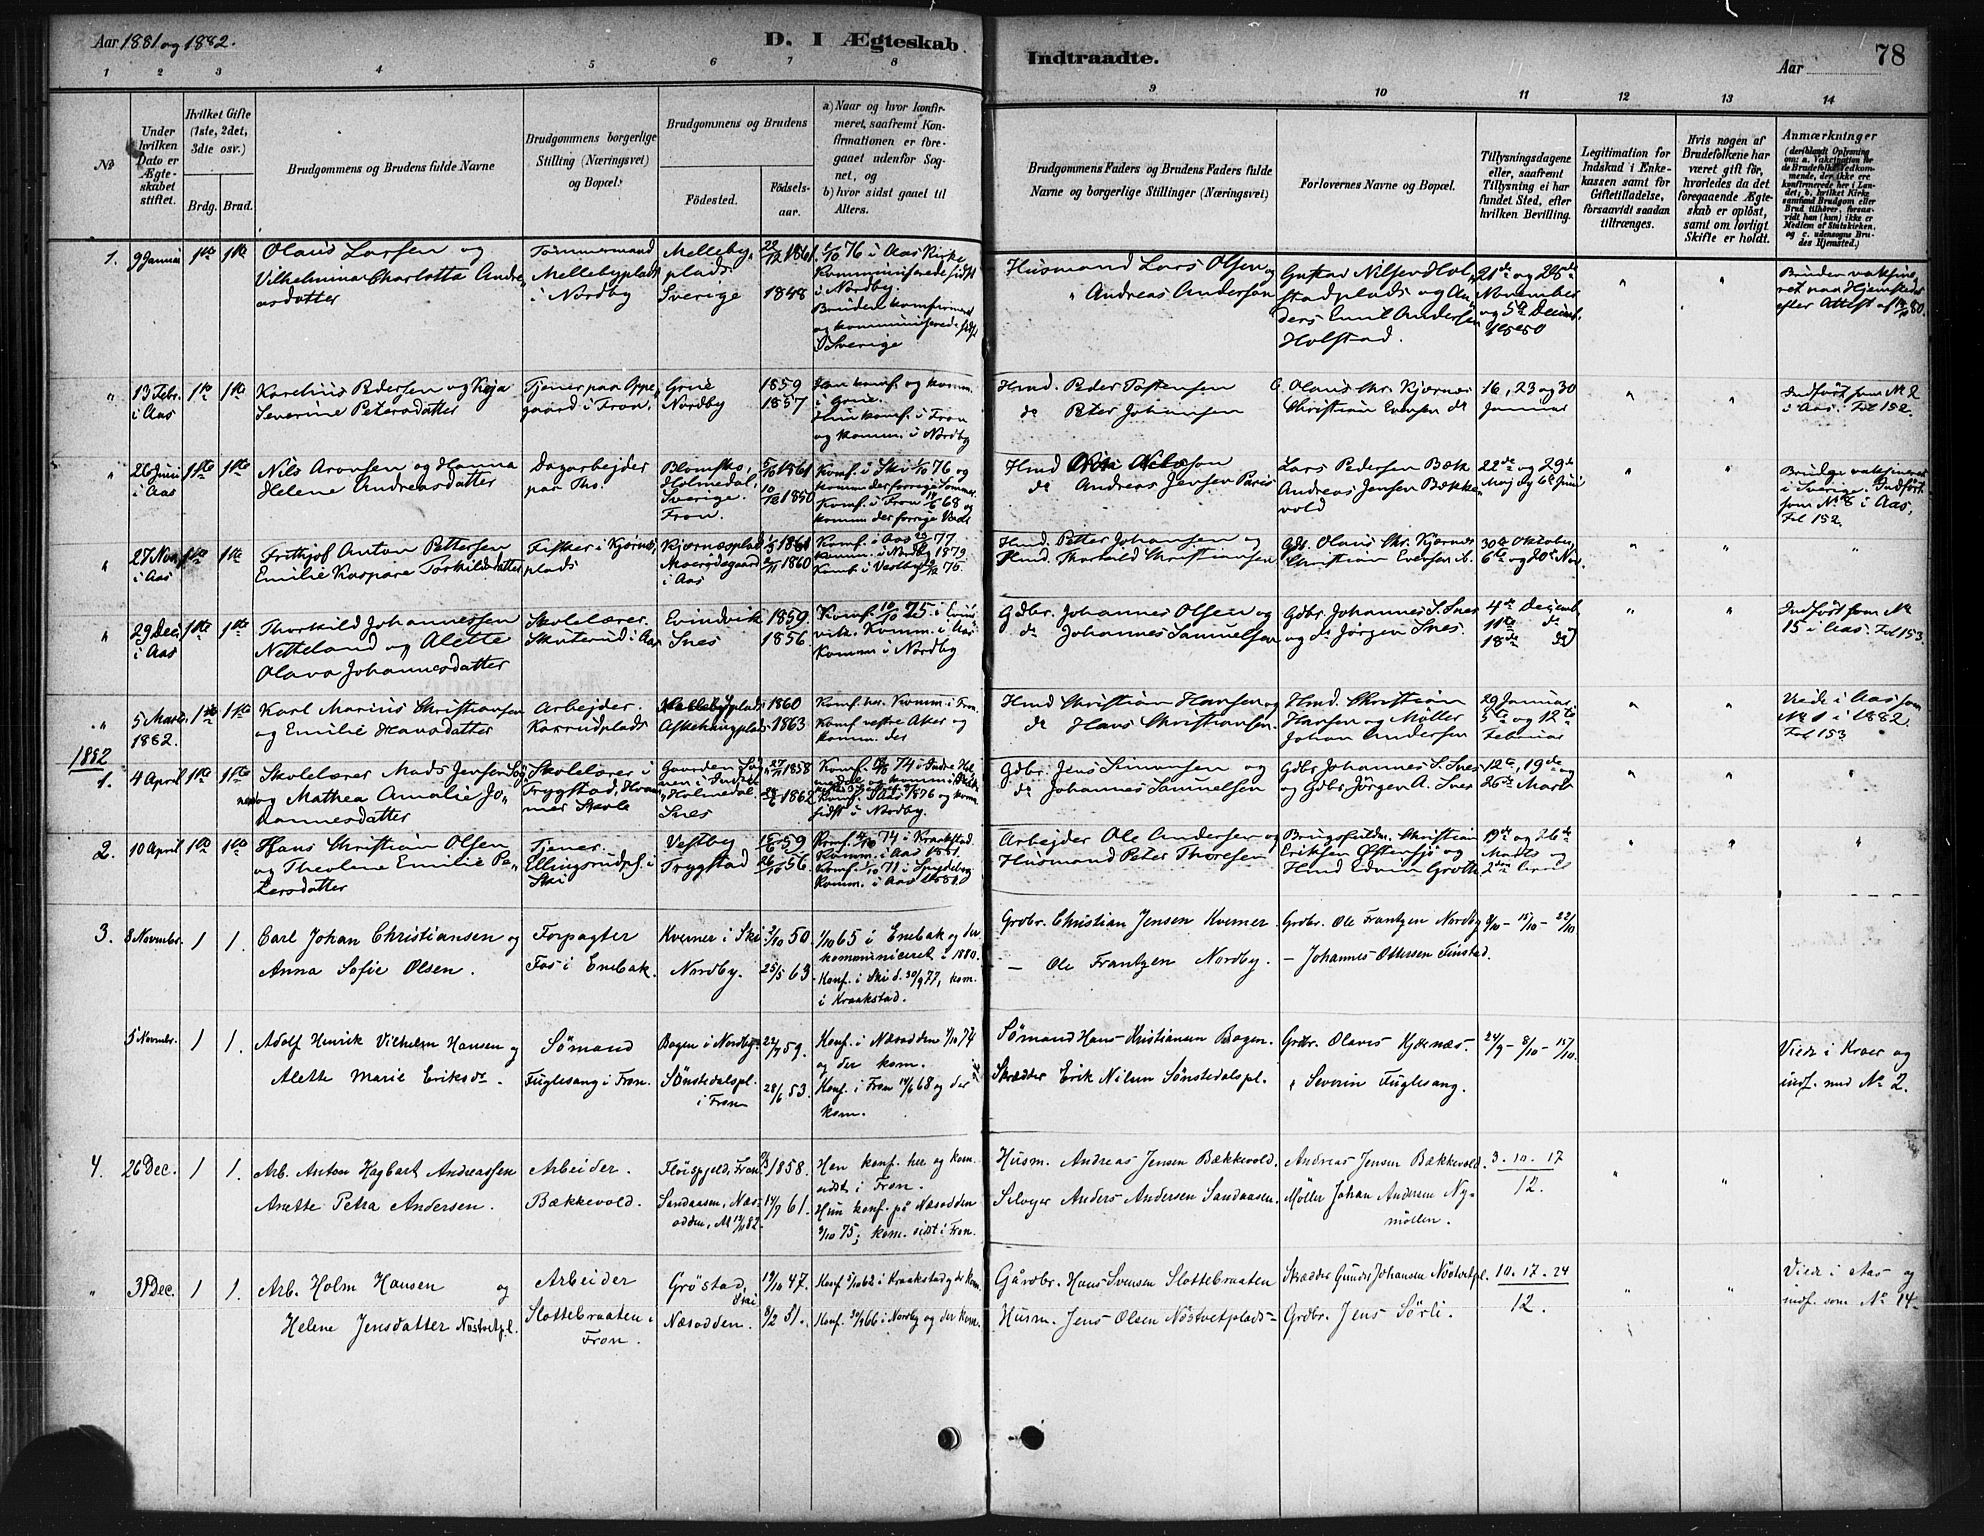 Aar 1881 og 1882.
D. I Ægteskab
Indtraadte.
Aar
78
1 2 3 4 5 6 7 8 9 10 11 12 13 14
No
Under hvilken Dato er Ægteskabet stiftet.
Hvilket Gifte (1ste, 2det, 3die osv.)
Brdg. Brud.
Brudgommens og Brudens fulde Navne
Brudgommens borgerlige Stilling (Næringsvei) og Bopæl.
Brudgommens og Brudens
Födested.
Födselsaar.
a) Naar og hvor konfirmeret, saafremt Konfirmationen er foregaaet udenför Sognet, og
b) hvor sidst gaaet til Alters.
Brudgommens Faders og Brudens Faders fulde Navne og borgerlige Stillinger (Næringsvei)
Forlovernes Navne og Bopæl.
Tillysningsdagene eller, saafremt Tillysning ei har fundet Sted, efter hvilken Bevilling.
Legitimation for Indskud i Enkekassen samt för Giftetilladelse, forsaavidt saadan tiltrænges.
Hvis nogen af Brudefolkene har været gift för, hvorledes da det foregaaende Ægteskab er oplöst, samt om lovligt Skifte er holdt.
Anmærkninger
1. 9 Januar 1ste 1ste Olaus Larsen og
Vilhelmina Charlotta Andreasdatter
Tømmermand
Mellebyplads
i Nordby
Melleby plads
Sverige
22/12 1861
1848
6/10 76 i Aas Kirke
Kommunicerede sidst
i Nordby.
Bruden konfirmeret
og kommunicerede sidst
i Sverige
Husmand Lars Olsen og
" Andreas Anderson
Gustav Nilsen Holstadplads og Anders Emil Andersen
Holstad.
21de og 25de
November
og 5te Decemb.
1880
Bruden vaksineret paa Hjemstedet
efter Attest af
" 13 Febr. i Aas 1ste 1ste Karelius Pedersen og Kaja
Severine Petersdatter
Tjener paa Oppegaard i Fron.
Grue
Nordby
1859
1857
Han konf. og komm.
i Grue.
Hun konf. i Fron
og komm. i Nordby
Hmd. Peder Tostensen
do Peter Johansen
G. Olaus Chr. Kjærnes
Christian Evensen do
16, 23 og 30
Januar
Indført som No 2
i Aas. Fol 152.
" 26 Juni i Aas 1ste 1ste Nils Aronsen og Hanna
Helene Andreasdatter
Dagarbejder
paa Ths.
Holmedal,
Sverige.
Fron.
1861
1850
Konf. i Ski 1/10 76 og
komm der forrige Sommer
Konf. i Fron 14/6 68 og
komm der forrige
Hmd
do Andreas Jensen
Lars Pedersen Bæk
Andreas Jensen Bækkevold
22de og 29de
Maj og 6te Juni
Brudgs vaksineret
i Sverige. Indført
som No 8 i Aas,
Fol 152.
" 27 Nov. i Aas 1ste 1ste Frithjof Anton Pettersen
Emilie Kaspare Torkildsdatter
Fisker i Kjørnesplads
Kjernæsplads
i Aas
1861
1860
Konf. i Aas 77
komm. i Nordby 1879.
Konf. i Vestby 75.
Hmd. Petter Johansen og
Hmd. Thorkild Christiansen
Gdb. Olaus Chr. Kjærnes
Christian Evensen ib.
30te Oktober
6te og 20de Nov.
" 29 Dec. i Aas 1ste 1ste Thorkild Johannessen
Netteland og Alette
Olava Johannesdatter
Skolelærer.
Skuterud i Aas
Evindvik
Snes
1859
1856
Konf. 10/10 75 i Evindvik. Komm. i Aas
Komm i Nordby
Gdbr. Johannes Olsen og
do Johannes Samuelsen
Gdbr. Johannes S. Snes
og do Jørgen Snes.
4de Decemb
11te do
18de do
Indført som No
15 i Aas. Fol 153.
" 5 Marts 1882. 1ste 1ste Karl Marius Christiansen
og Emilie Hansdatter
Arbejder.
Karrudplads
Mellebyplads
1860
1863
Konf. her. Komm i Fron.
Konf. vestre Aker og
komm. der
Hmd Christian Hansen og
do Hans Christiansen.
Hmd. Christian
Hansen og Møller
Johan Andersen
29 Januar
5te og 12te
Februar
Viede i Aas som
No 1 i 1882.
Fol 153
1882
1. 4 April 1ste 1ste Skolelærer Mads Jensen
og Mathea Amalie Johannesdatter
Skolelærer i
Trygstad,
Gaarden
Holmedal
Snes
1858
1862
Konf. i Aas 1876 og komm.
sidst i Nordby.
Gdbr. Jens Simonsen og
do Johannes Samuelsen
Gdbr Johannes S. Snes
og Gdbr Jørgen A. Snes
12te, 19de og
26de Marts
2. 10 April 1ste 1ste Hans Christian Olsen
og Theoline Emilie Petersdatter
Tjener.
Ellingsrudpl. i
Ski
Vestby
Trygstad
59
26/10 56
Konf. 74 i Kraakstad.
Komm. i Aas 1881.
Konf. 71 i Spydeberg
Komm. i Aas
Arbejder Ole Andersen og
Husmand Peter Thoresen
Christian
Eriksen Østensjø og
Hmd Edvin Groth
19de og 26de
Marts og
2den April
3. 8 November. 1 1. Carl Johan Christiansen og
Anna Sofie Olsen.
Forpagter
Fos i Enebak.
Kverner i Ski
Nordby.
2/10 50
25/5 63
1/10 65 i Enebak og der
kommuniceret i 1880.
Konf. i Ski d. 30/9 77, kom.
i Kraakstad.
Grdbr. Christian Jensen Kverner.
— Ole Frantzen Nordby.
Grdbr. Ole Frantzen Nordby
— Johannes Ottersen Finstad.
8/10 - 15/10 - 22/10
5 Novembr. 1 1. Adolf Henrik Vilhelm Hansen og
Alette Marie Eriksdr.
Sömand
Fuglesang i Fron.
Bogen i Nordby
Sönstedalspl. i Fron
22/7 59.
28/6 53.
Konf. i Næsodden 4/10 74
og der kom.
Konf. i Fron 14/6 68 og der
kom.
Sömand Hans Kristiansen Bogen.
Skrædder Erik Nilsen Sönstedalspl.
Grdbr. Olaves Kjærnæs.
" Severin Fuglesang.
24/9 - 8/10 - 15/10.
Viede i Kroer og
indf. med No 2.
4. 26 Dec. 1 1. Arb. Anton Hagbart Andreassen
Anette Petra Andersen.
Arbeider.
Bækkevold.
Flöispjeld, Fron
Sandaasen, Næsodden,
1858.
14/7 61.
Han konf. her og kom.
sidst i Fron.
Hun konf. på Næsodden
3/10 75; kom. sidst i Fron.
Husm. Andreas Jensen Bækkevold.
Selveier Anders Andersen Sandaasen.
Andreas Jensen Bækkevold.
Möller Johan Andersen Nymöllen.
3. 10. 17
12.
" 31 Dec. 1 1. Arb. Holm Hansen og
Helene Jensdatter Nöstvetpl.
Arbeider
Slottebraaten i
Fron.
Gröstad, Ski
Næsodden.
19/10 47.
8/2 51.
Konf 5/10 62 i Kraakstad og der kom.
Konf. 30/9 66 i Nordby og der kom.
Gårdbr. Hans Svensen Slottebraaten
Husm. Jens Olsen Nöstvetplads
Skrædder Gunder Johansen Nöstvetpl.
Grdbr. Jens Sörli.
10. 17. 24
12.
Viede i Aas og
indf. som No 14